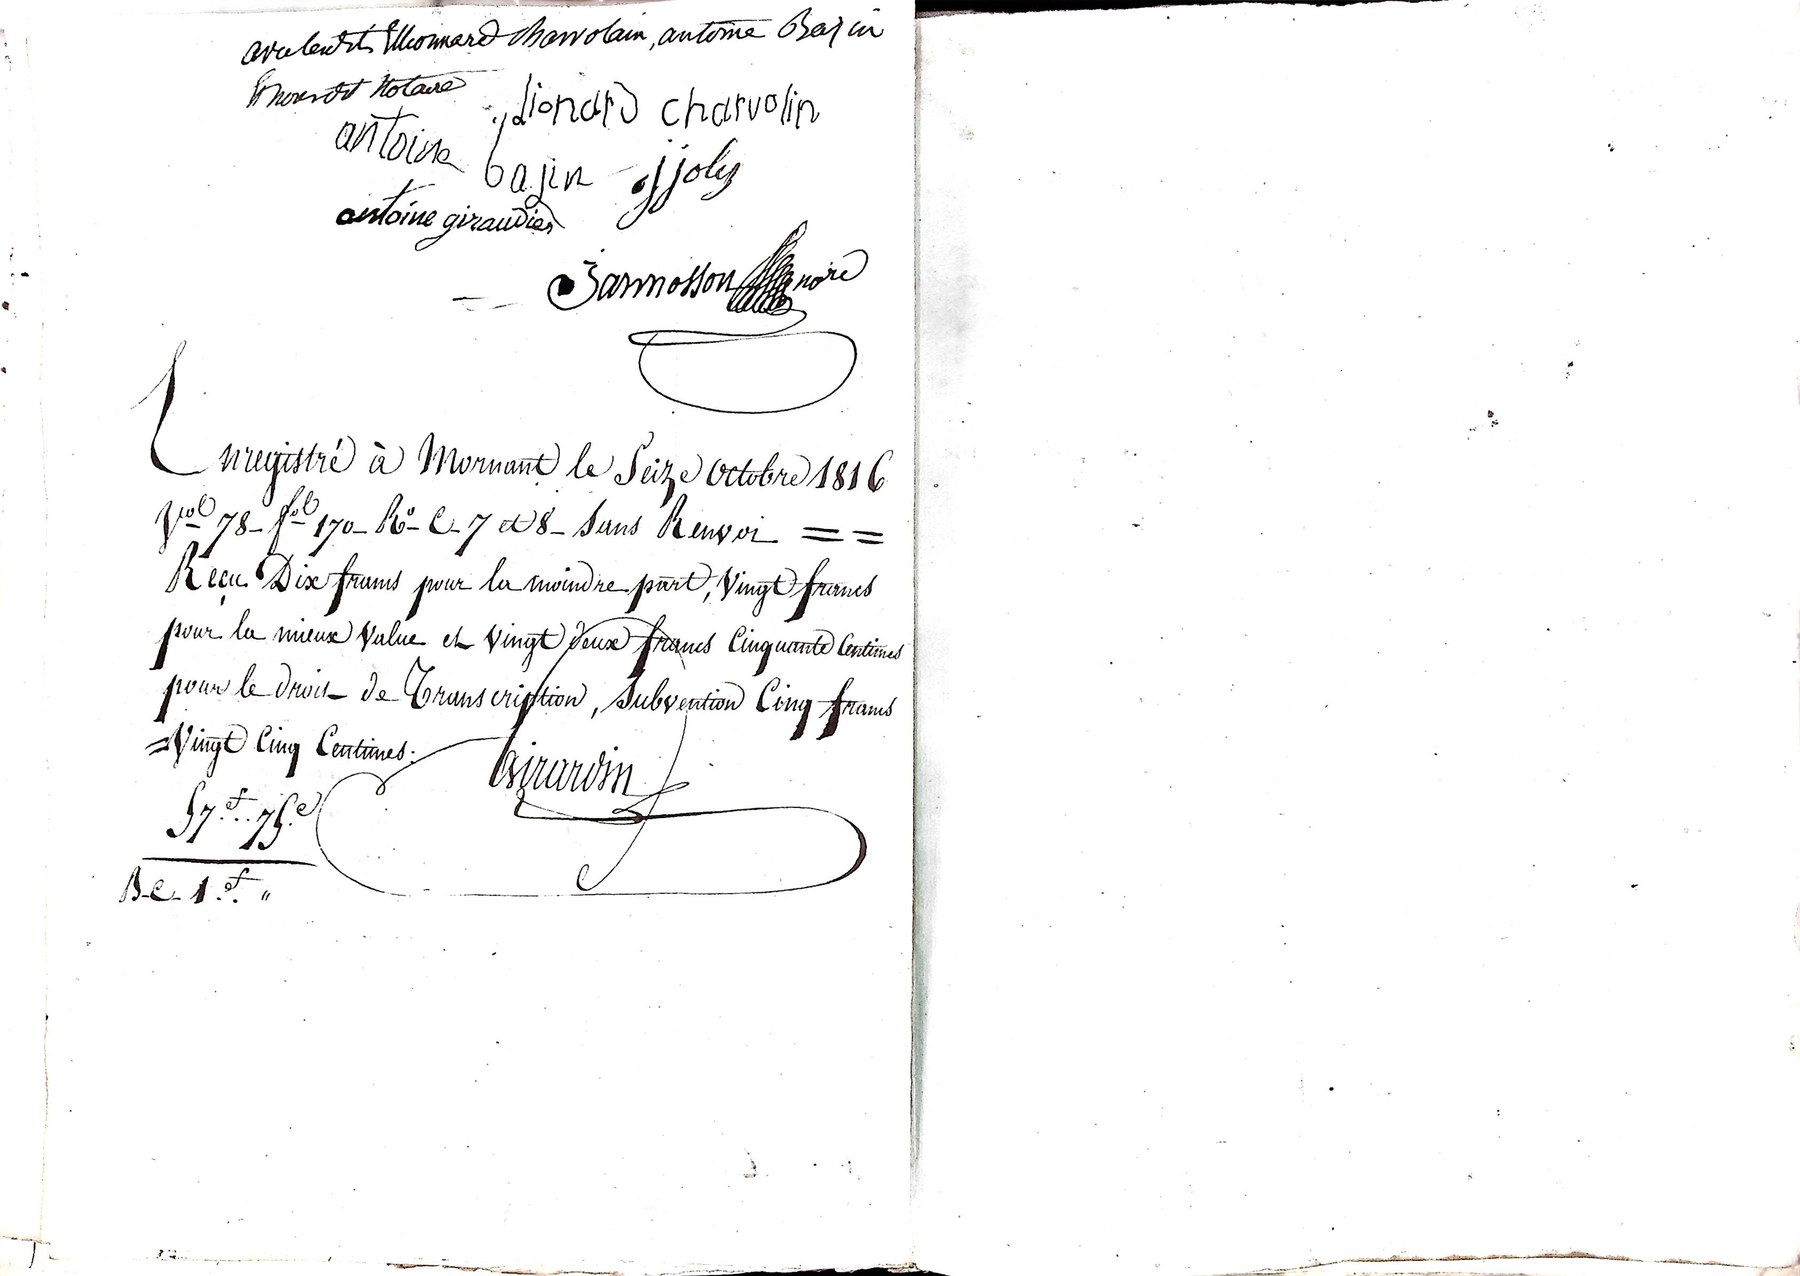 avec lesdits Lleonnard Charvolain, antoine Bazin
et nous dit Notaire
lionard charvolin
antoine bajin jjoly
antoine giraudier
Jarmosson nore
Enregistré à Mornant le Seize Octobre 1816
Vol 78 - fol 170 - Ro - C - 7 et 8 - Sans Renvoi = =
Reçu Dix francs pour la moindre part, Vingt francs
pour la mieux Value et Vingt deux francs Cinquante Centimes
pour le droit de Transcription, Subvention Cinq francs
= Vingt Cinq Centimes.
Girardin
57.f.. 75.c
B - C - 1.f. "